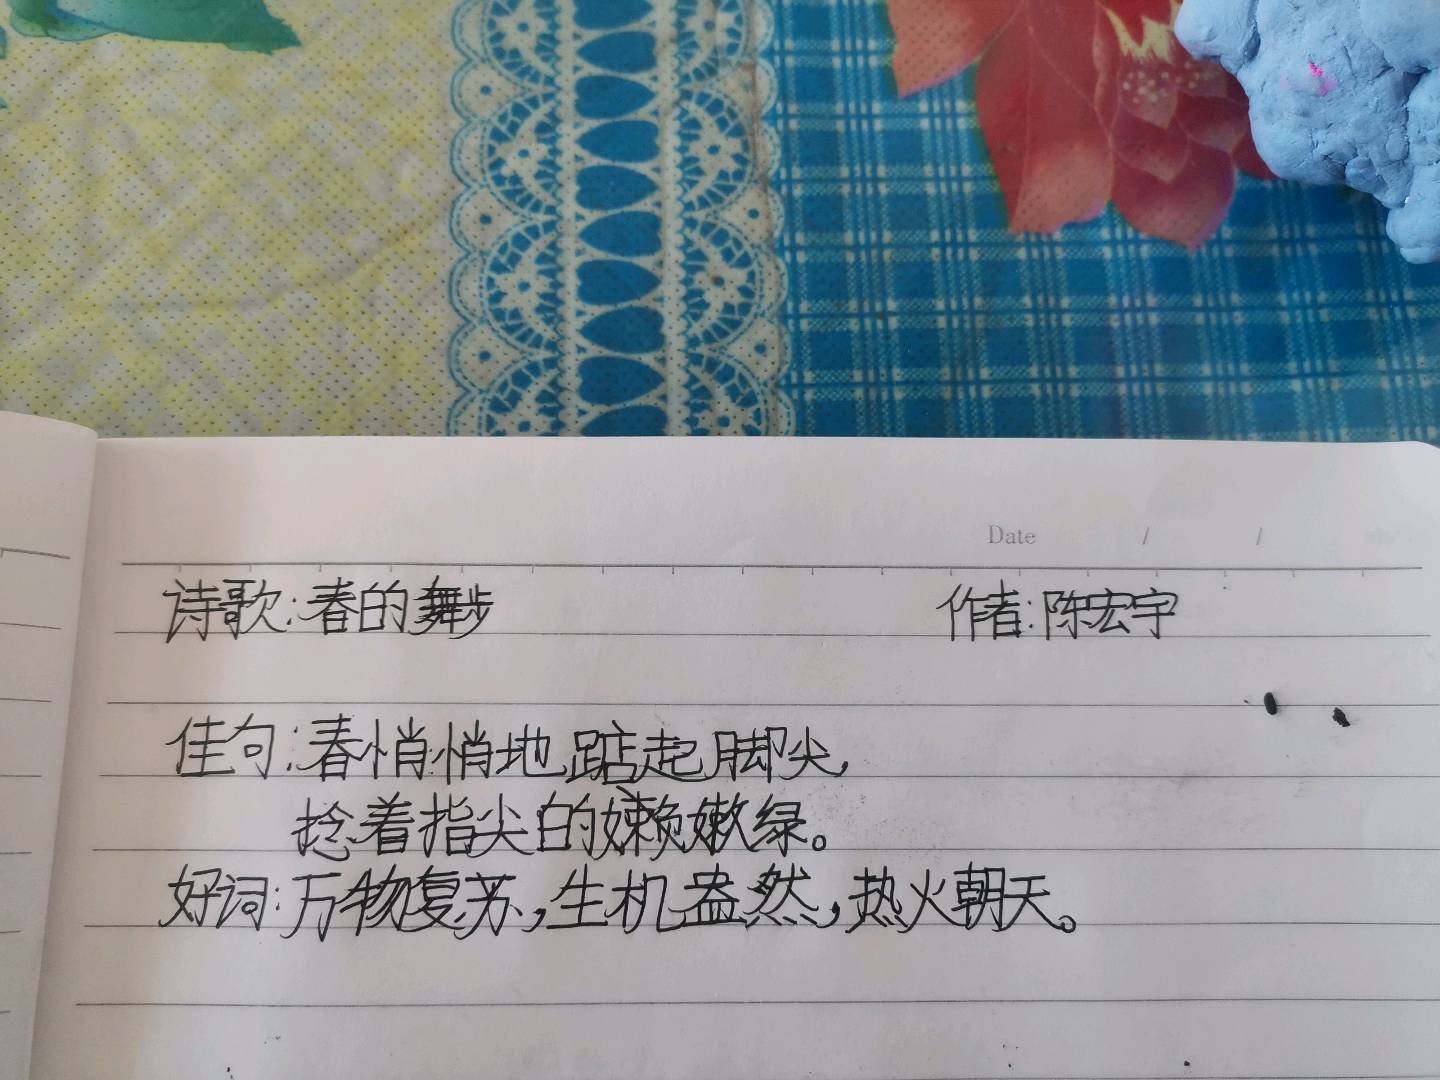 Date / /
诗歌:春的舞步 作者:陈宏宇
佳句:春悄悄地踮起脚尖,
捻着指尖的嫩绿。
好词:万物复苏,生机盎然,热火朝天。